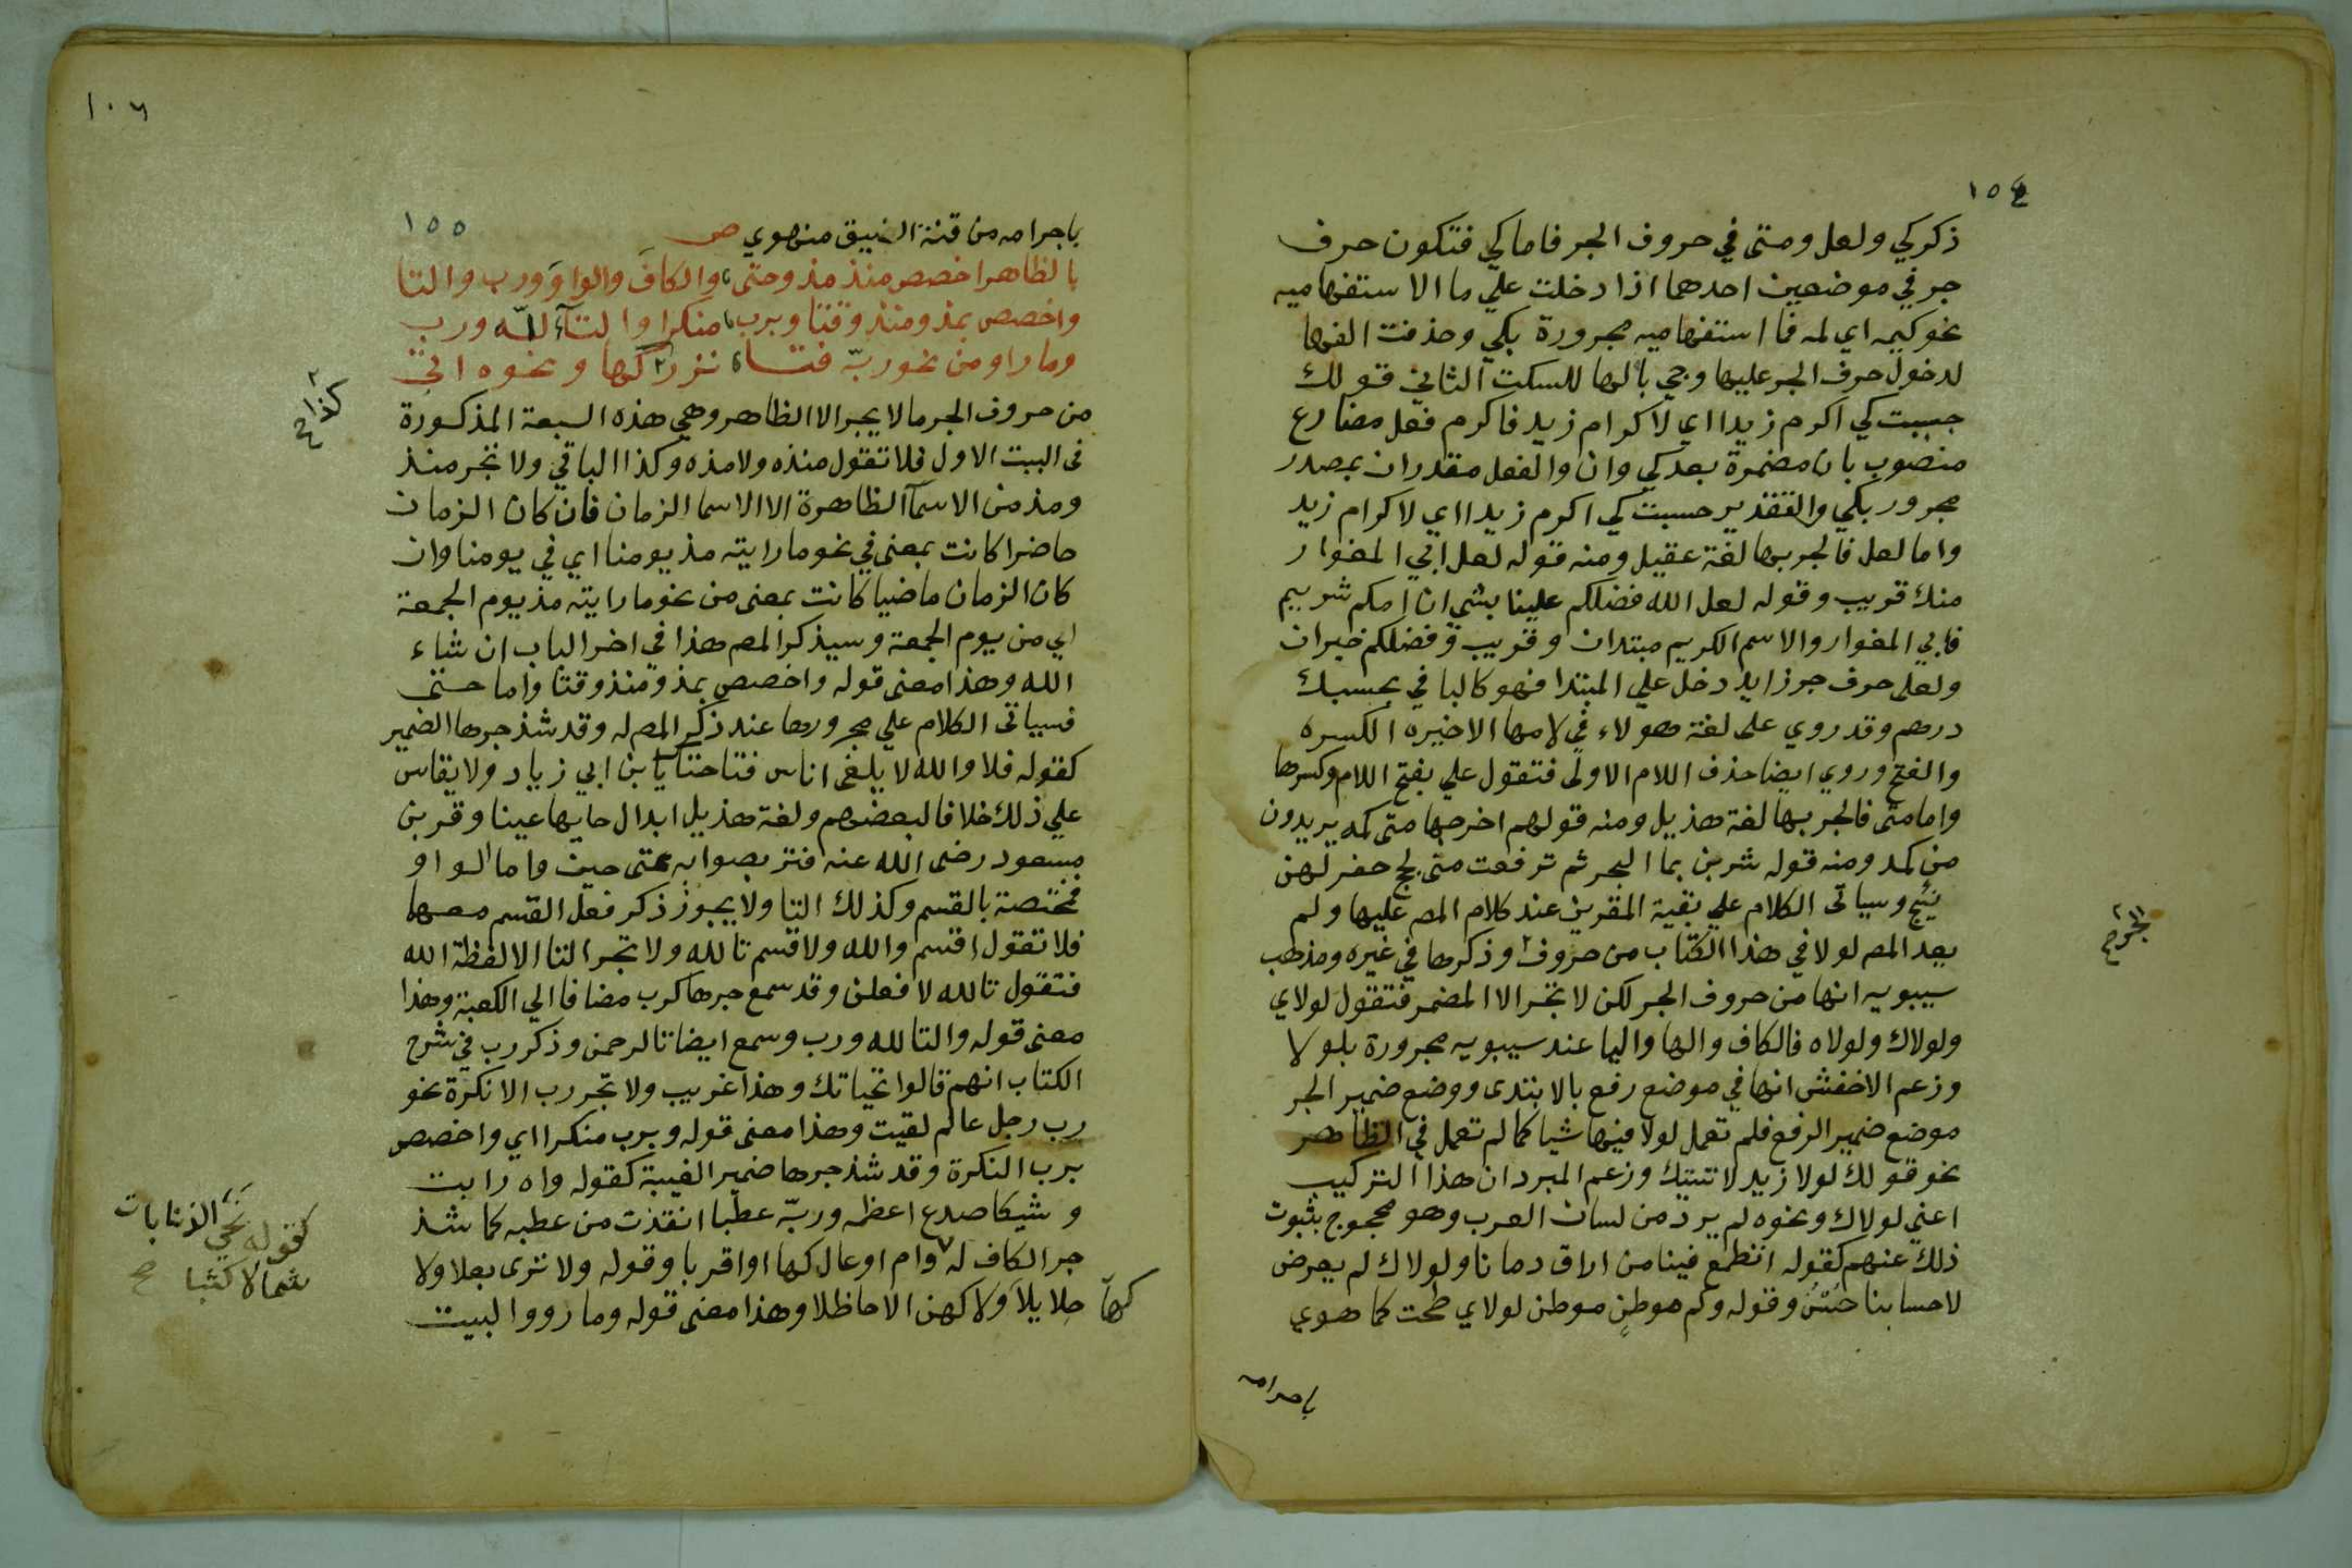 ١٥٤
ذكر كي ولعل ومتى في حروف الجر فاما كي فتكون حرف
جر في موضعين احدهما اذا دخلت علي ما الاستفهاميه
نحو كيمه اي لمه فما استفهاميه مجرورة بكي وحذفت الفها
لدخول حرف الجر عليها وجي بالها للسكت الثاني قولك
جيت كي اكرم زيدا اي لاكرام زيد فاكرم فعل مضارع
منصوب بان مضمرة بعد كي وان والفعل مقدران بمصدر
مجرور بكي والتقدير حسبت كي اكرم زيدا اي لاكرام زيد
واما لعل فالجر بها لغة عقيل ومنه قوله لعل ابي المغوار
منك قريب وقوله لعل الله فضلكم علينا بشي ان امكم شريم
فابي المغوار والاسم الكريم مبتدان وقريب وفضلكم خبران
ولعل حرف جر زايد دخل علي المبتدا فهو كالبا في بحسبك
درهم وقد روي على لغة هولاء في لامها الاخيره الكسره
والفتح وروي ايضا حذف اللام الاولى فتقول علي بفتح اللام وكسرها
واما متى فالجر بها لغة هذيل ومنه قولهم اخرجها متى كمه يريدون
من كمه ومنه قوله شربن بما البحر ثم ترفعت متى لجج خضر لهن
نئيج وسياتى الكلام علي بقية العشرين عند كلام المص عليها ولم
يعد المص لولا في هذا الكتاب من حروف وذكرها في غيره ومذهب
الجر صح
سيبويه انها من حروف الجر لكن لا تجر الا المضمر فتقول لولاي
ولولاك ولولاه فالكاف والها واليا عند سيبويه مجرورة بلولا
وزعم الاخفش انها في موضع رفع بالابتدى ووضع ضمير الجر
موضع ضمير الرفع فلم تعمل لولا فيها شيا كما لم تعمل في الظاهر
نحو قولك لولا زيد لاتيتك وزعم المبرد ان هذا التركيب
اعني لولاك ونحوه لم يرد من لسان العرب وهو محجوج بثبوت
ذلك عنهم كقوله اتطمع فينا من اراق دمانا ولولاك لم يعرض
لاحسابنا حسن وقوله وكم موطن موطن لولاي طحت كما هوي
باجرامه
١٠٦
١٥٥
باجرامه من قنة النيق منهوي ص
بالظاهر اخصص منذ مذ وحتى والكاف والواو ورب والتا
واخصص بمذ ومنذ وقتا وبرب منكرا والتآء لله ورب
وما راو من نحو ربه فتى نزر كذا كها ونحوه اتى
كذا صح
من حروف الجر ما لا يجر الا الظاهر وهي هذه السبعة المذكورة
في البيت الاول فلا تقول منذه ولا مذه وكذا الباقي ولا تجر منذ
ومذ من الاسمآ الظاهرة الا الاسما الزمان فان كان الزمان
حاضرا كانت بمعنى في نحو ما رايته مذ يومنا اي في يومنا وان
كان الزمان ماضيا كانت بمعنى من نحو ما رايته مذ يوم الجمعة
اي من يوم الجمعة وسيذكر المص هذا في اخر الباب ان شاء
الله وهذا معنى قوله واخصص بمذ ومنذ وقتا واما حتى
فسياتى الكلام علي مجرورها عند ذكر المص له وقد شذ جرها الضمير
كقوله فلا والله لا يلفى اناس فتا حتاك يا بن ابي زياد ولا يقاس
علي ذلك خلافا لبعضهم ولغة هذيل ابدال حايها عينا وقر بن
مسعود رضى الله عنه فتربصوا به عتى حين واما الواو
فمختصة بالقسم وكذلك التا ولا يجوز ذكر فعل القسم معها
فلا تقول اقسم والله ولا اقسم تالله ولا تجر التا الا لفظة الله
فتقول تالله لافعلن وقد سمع جرها كرب مضافا الي الكعبة وهذا
معنى قوله والتا لله ورب وسمع ايضا تالرحمن وذكر رب في شرح
الكتاب انهم قالوا تحياتك وهذا غريب ولا تجر رب الا نكرة نحو
رب رجل عالم لقيت وهذا معنى قوله وبرب منكرا اي واخصص
برب النكرة وقد شذ جرها ضمير الغيبة كقوله واه رابت
وشيكا صدع اعظمه وربه عطبا انقذت من عطبه كما شذ
جر الكاف له وام اوعال كها او اقربا وقوله ولا ترى بعلا ولا
كقوله نحي الذنابات
شمالا كثبا صح
حلايلا ولا كهن الا حاظلا وهذا معنى قوله وما رووا البيت
كهآ